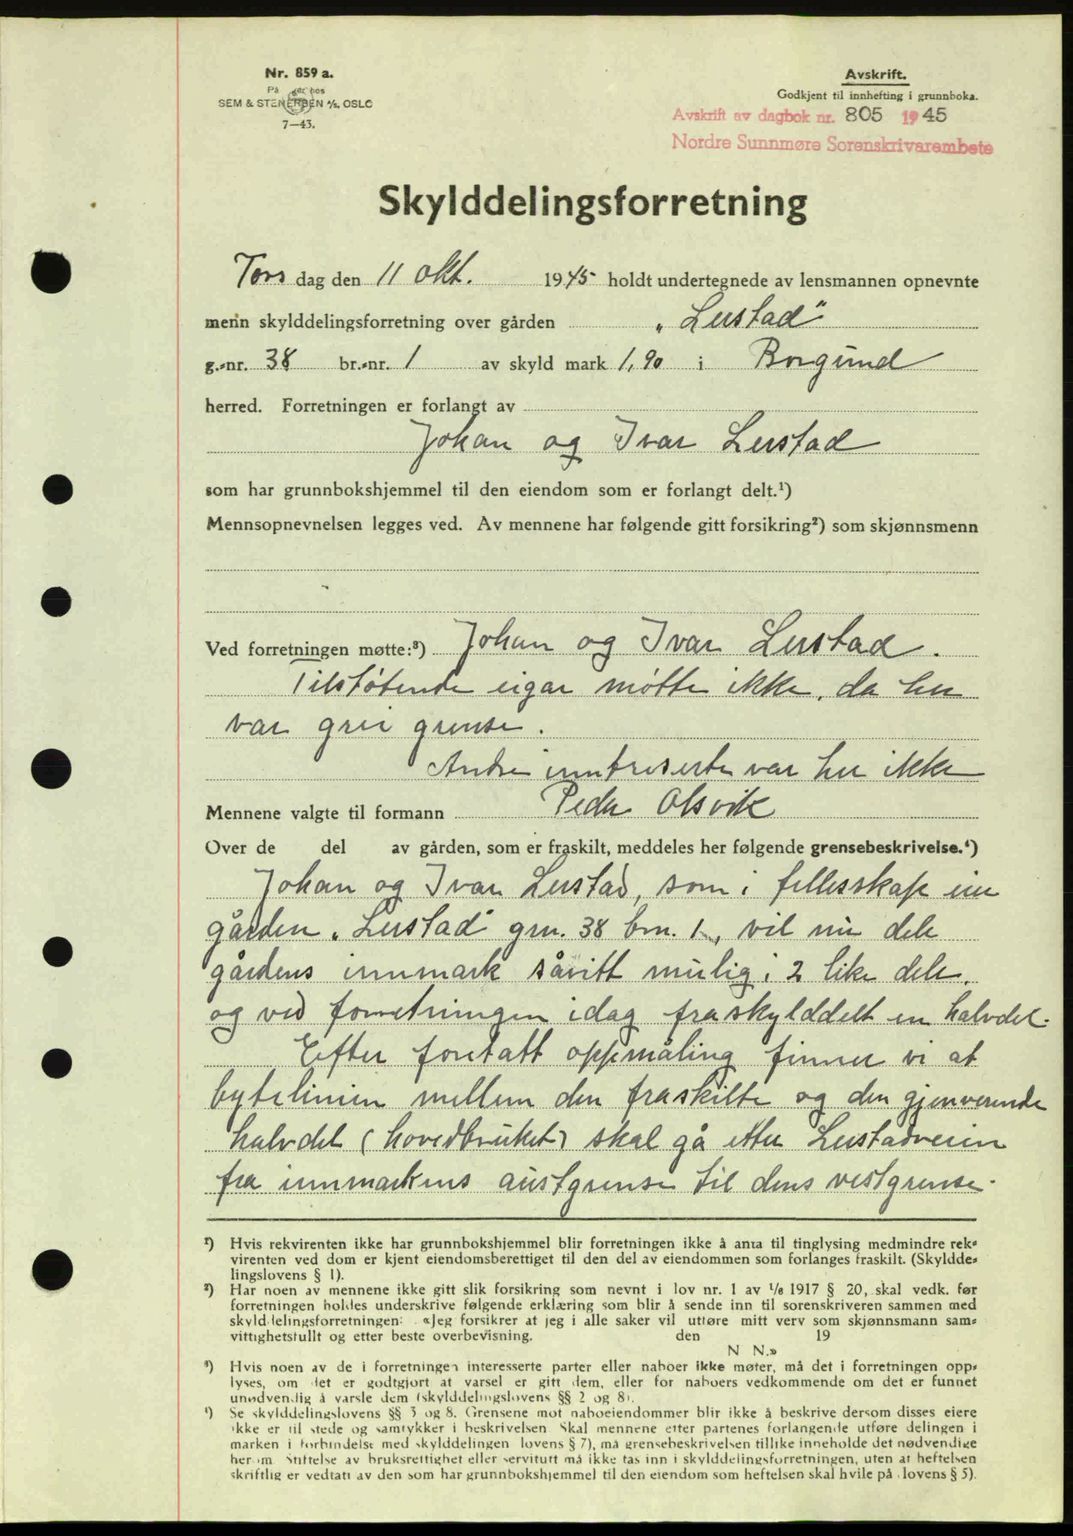 Nr. 859 a.
SEM & STENERSEN A/S, OSLO
7—43.
Avskrift.
Godkjent til innhefting i grunnboka.
Avskrift av dagbok nr. 805 1945
Nordre Sunnmøre Sorenskrivarembete
Skylddelingsforretning
Tors dag den 11 okt. 1945 holdt undertegnede av lensmannen opnevnte
menn skylddelingsforretning over gården „Lerstad"
g.-nr. 38 br.-nr. 1 av skyld mark 1,90 i Borgund
herred. Forretningen er forlangt av
Johan og Ivar Lerstad
som har grunnbokshjemmel til den eiendom som er forlangt delt.¹)
Mennsopnevnelsen legges ved. Av mennene har følgende gitt forsikring²) som skjønnsmenn
Ved forretningen møtte:³) Johan og Ivar Lerstad.
Tilstøtende eigar møtte ikke, da her
var grei grense.
Andre inntreserte var her ikke
Mennene valgte til formann Peder Olsvik
Over de del av gården, som er fraskilt, meddeles her følgende grensebeskrivelse.⁴)
Johan og Ivar Lerstad, som i fellesskap eier
gården „Lerstad" grn. 38 brn. 1, vil nu dele
gårdens innmark såvitt mulig i 2 like dele,
og ved forretningen idag fraskylddelt en halvdel.
Efter foretatt oppmåling finner vi at
bytelinien mellem den fraskilte og den gjenverende
halvdel (hovedbruket) skal gå etter Lerstadveien
fra innmarkens austgrense til dens vestgrense.
¹) Hvis rekvirenten ikke har grunnbokshjemmel blir forretningen ikke å anta til tinglysing medmindre rek-
virenten ved dom er kjent eiendomsberettiget til den del av eiendommen som forlanges fraskilt. (Skyldde-
lingslovens § 1).
²) Har noen av mennene ikke gitt slik forsikring som nevnt i lov nr. 1 av 1/6 1917 § 20, skal vedk. før
forretningen holdes underskrive følgende erklæring som blir å sende inn til sorenskriveren sammen med
skylddelingsforretningen: «Jeg forsikrer at jeg i alle saker vil utføre mitt verv som skjønnsmann sam-
vittighetsfullt og etter beste overbevisning. den 19
N N.»
³) Hvis noen av de i forretningen interesserte parter eller naboer ikke møter, må det i forretningen opp-
lyses, om det er godtgjort at varsel er gitt dem, eller for naboers vedkommende om det er funnet
unødvendig å varsle dem (skylddelingslovens §§ 2 og 8).
⁴) Se skylddelingslovens §§ 3 og 8. Grensene mot naboeiendommer blir ikke å beskrive dersom disses eiere
ikke er til stede og samtykker i beskrivelsen. Skal mennene etter partenes forlangende utføre delingen i
marken i forbindelse med skylddelingen (lovens § 7), må grensebeskrivelsen tillike inneholde det nødvendige
her om. Stiftelse av bruksrettighet eller servitutt må ikke tas inn i skylddelingsforretningen, uten at heftelsen
skriftlig er vedtatt av den som har grunnbokshjemmel til den eiendom som heftelsen skal hvile på (lovens § 5).